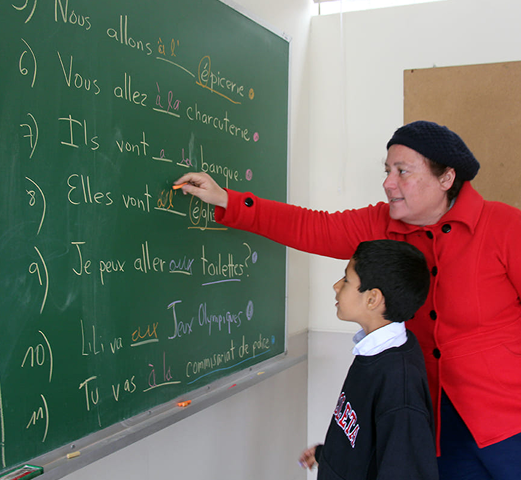 5) Nous allons à l' épicerie.
6) Vous allez à la charcuterie.
7) Ils vont à la banque.
8) Elles vont à l' église
9) Je peux aller aux toilettes?
10) Lili va aux Jeux Olympiques
11) Tu vas à la commisriat de police